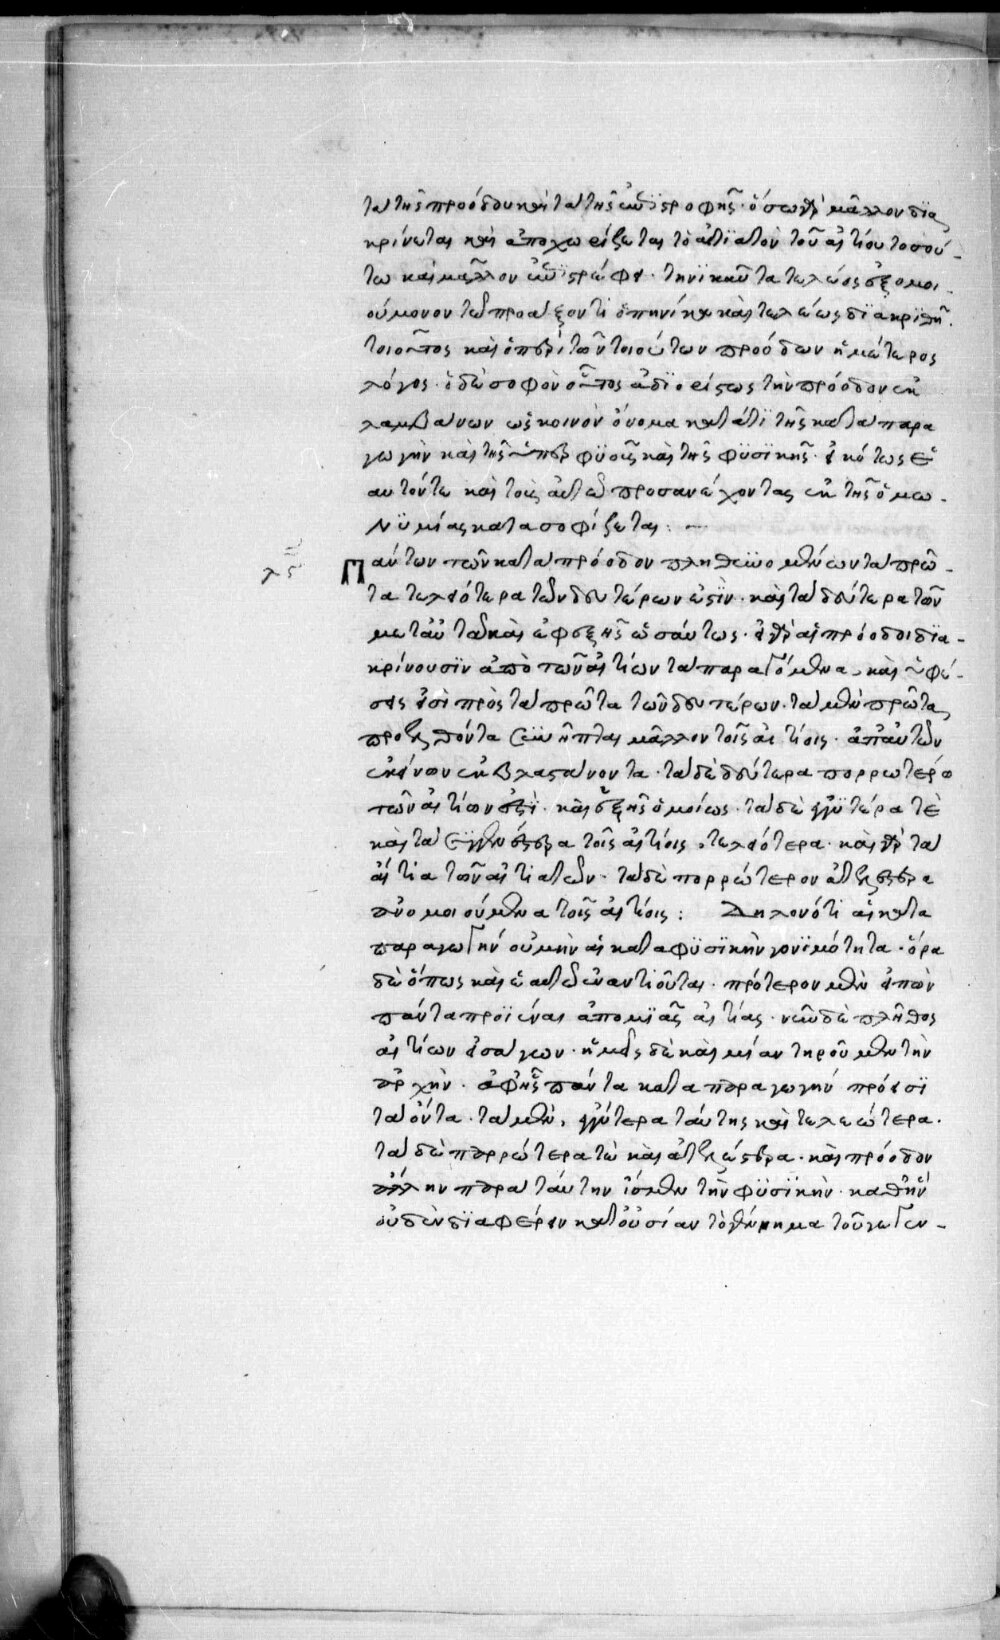 τὰ τῆς προόδου καὶ τὰ τῆς ἐπιστροφῆς· ὅσω γὰρ μᾶλλον δια
κρίνεται καὶ ἀποχωρίζεται τὸ αἰτιατὸν τοῦ αἰτίου τοσού-
τω καὶ μᾶλλον ἐπιστρέφει· τηνικαῦτα τελείως ἐξομοι-
ούμενον τῷ προάξοντι ὁπηνίκα καὶ τελείως διακριθῇ.
τοιοῦτος καὶ ὁ περὶ τῶν τοιούτων προόδων ἡμέτερος
λόγος· ὁ δὲ σοφὸν οὗτος ἀδιορίστως τὴν πρόοδον ἐκ
λαμβάνων ὡς κοινὸν ὄνομα κατά τε τῆς κατὰ παρα
γωγὴν καὶ τῆς ὑπερφυσοῦς καὶ τῆς φυσικῆς· εἰκότως ἑ
αυτόν τε καὶ τοὺς αὐτῷ προσανέχοντας ἐκ τῆς ὁμω-
νυμίας κατασοφίζεται: —
λς Πάντων τῶν κατὰ πρόοδον πληθυομένων τὰ πρῶ-
τα τελειότερα τῶν δευτέρων εἰσὶν· καὶ τὰ δεύτερα τῶν
μετ' αὐτὰ καὶ ἐφεξῆς ὡσαύτως· εἰ γὰρ αἱ πρόοδοι δια-
κρίνουσιν ἀπὸ τῶν αἰτίων τὰ παραγόμενα, καὶ ὑφέ-
σεις εἰσὶ πρὸς τὰ πρῶτα τῶν δευτέρων· τὰ μὲν πρῶτα
προελθόντα συνῆπται μᾶλλον τοῖς αἰτίοις· ἀπ' αὐτῶν
ἐκείνων ἐκβλαστάνοντα· τὰ δὲ δεύτερα πορρωτέρω
τῶν αἰτίων ἐστὶ· καὶ ἑξῆς ὁμοίως· τὰ δὲ ἐγγυτέρα τε
καὶ τὰ συγγενέστερα τοῖς αἰτίοις, τελειότερα· καὶ γὰρ τὰ
αἴτια τῶν αἰτιατῶν· τὰ δὲ πορρώτερον ἀτελέστερα
ἀνομοιούμενα τοῖς αἰτίοις: Δηλονότι αἱ κατὰ
παραγωγήν οὐ μὴν αἱ κατὰ φυσικὴν γονιμότητα· ὅρα
δὲ ὅπως καὶ ἑαυτῷ ἐναντιοῦται· πρότερον μὲν εἰπὼν
πάντα προϊέναι ἀπὸ μιᾶς αἰτίας· νῦν δὲ πλῆθος
αἰτίων εἰσάγων· ἡμεῖς δὲ καὶ μίαν τηροῦμεν τὴν
ἀρχὴν· ἀφ' ἧς πάντα κατὰ παραγωγήν πρόεισι
τὰ ὄντα· τὰ μὲν, ἐγγύτερα ταύτης καὶ τελεώτερα·
τὰ δὲ πορρώτερά τε καὶ ἀτελέστερα· καὶ πρόοδον
ἄλλην παρὰ ταύτην ἴσμεν τὴν φυσικὴν· καθ' ἣν
οὐδὲν διαφέρειν κατ' οὐσίαν τὸ γέννημα τοῦ γεγεν-